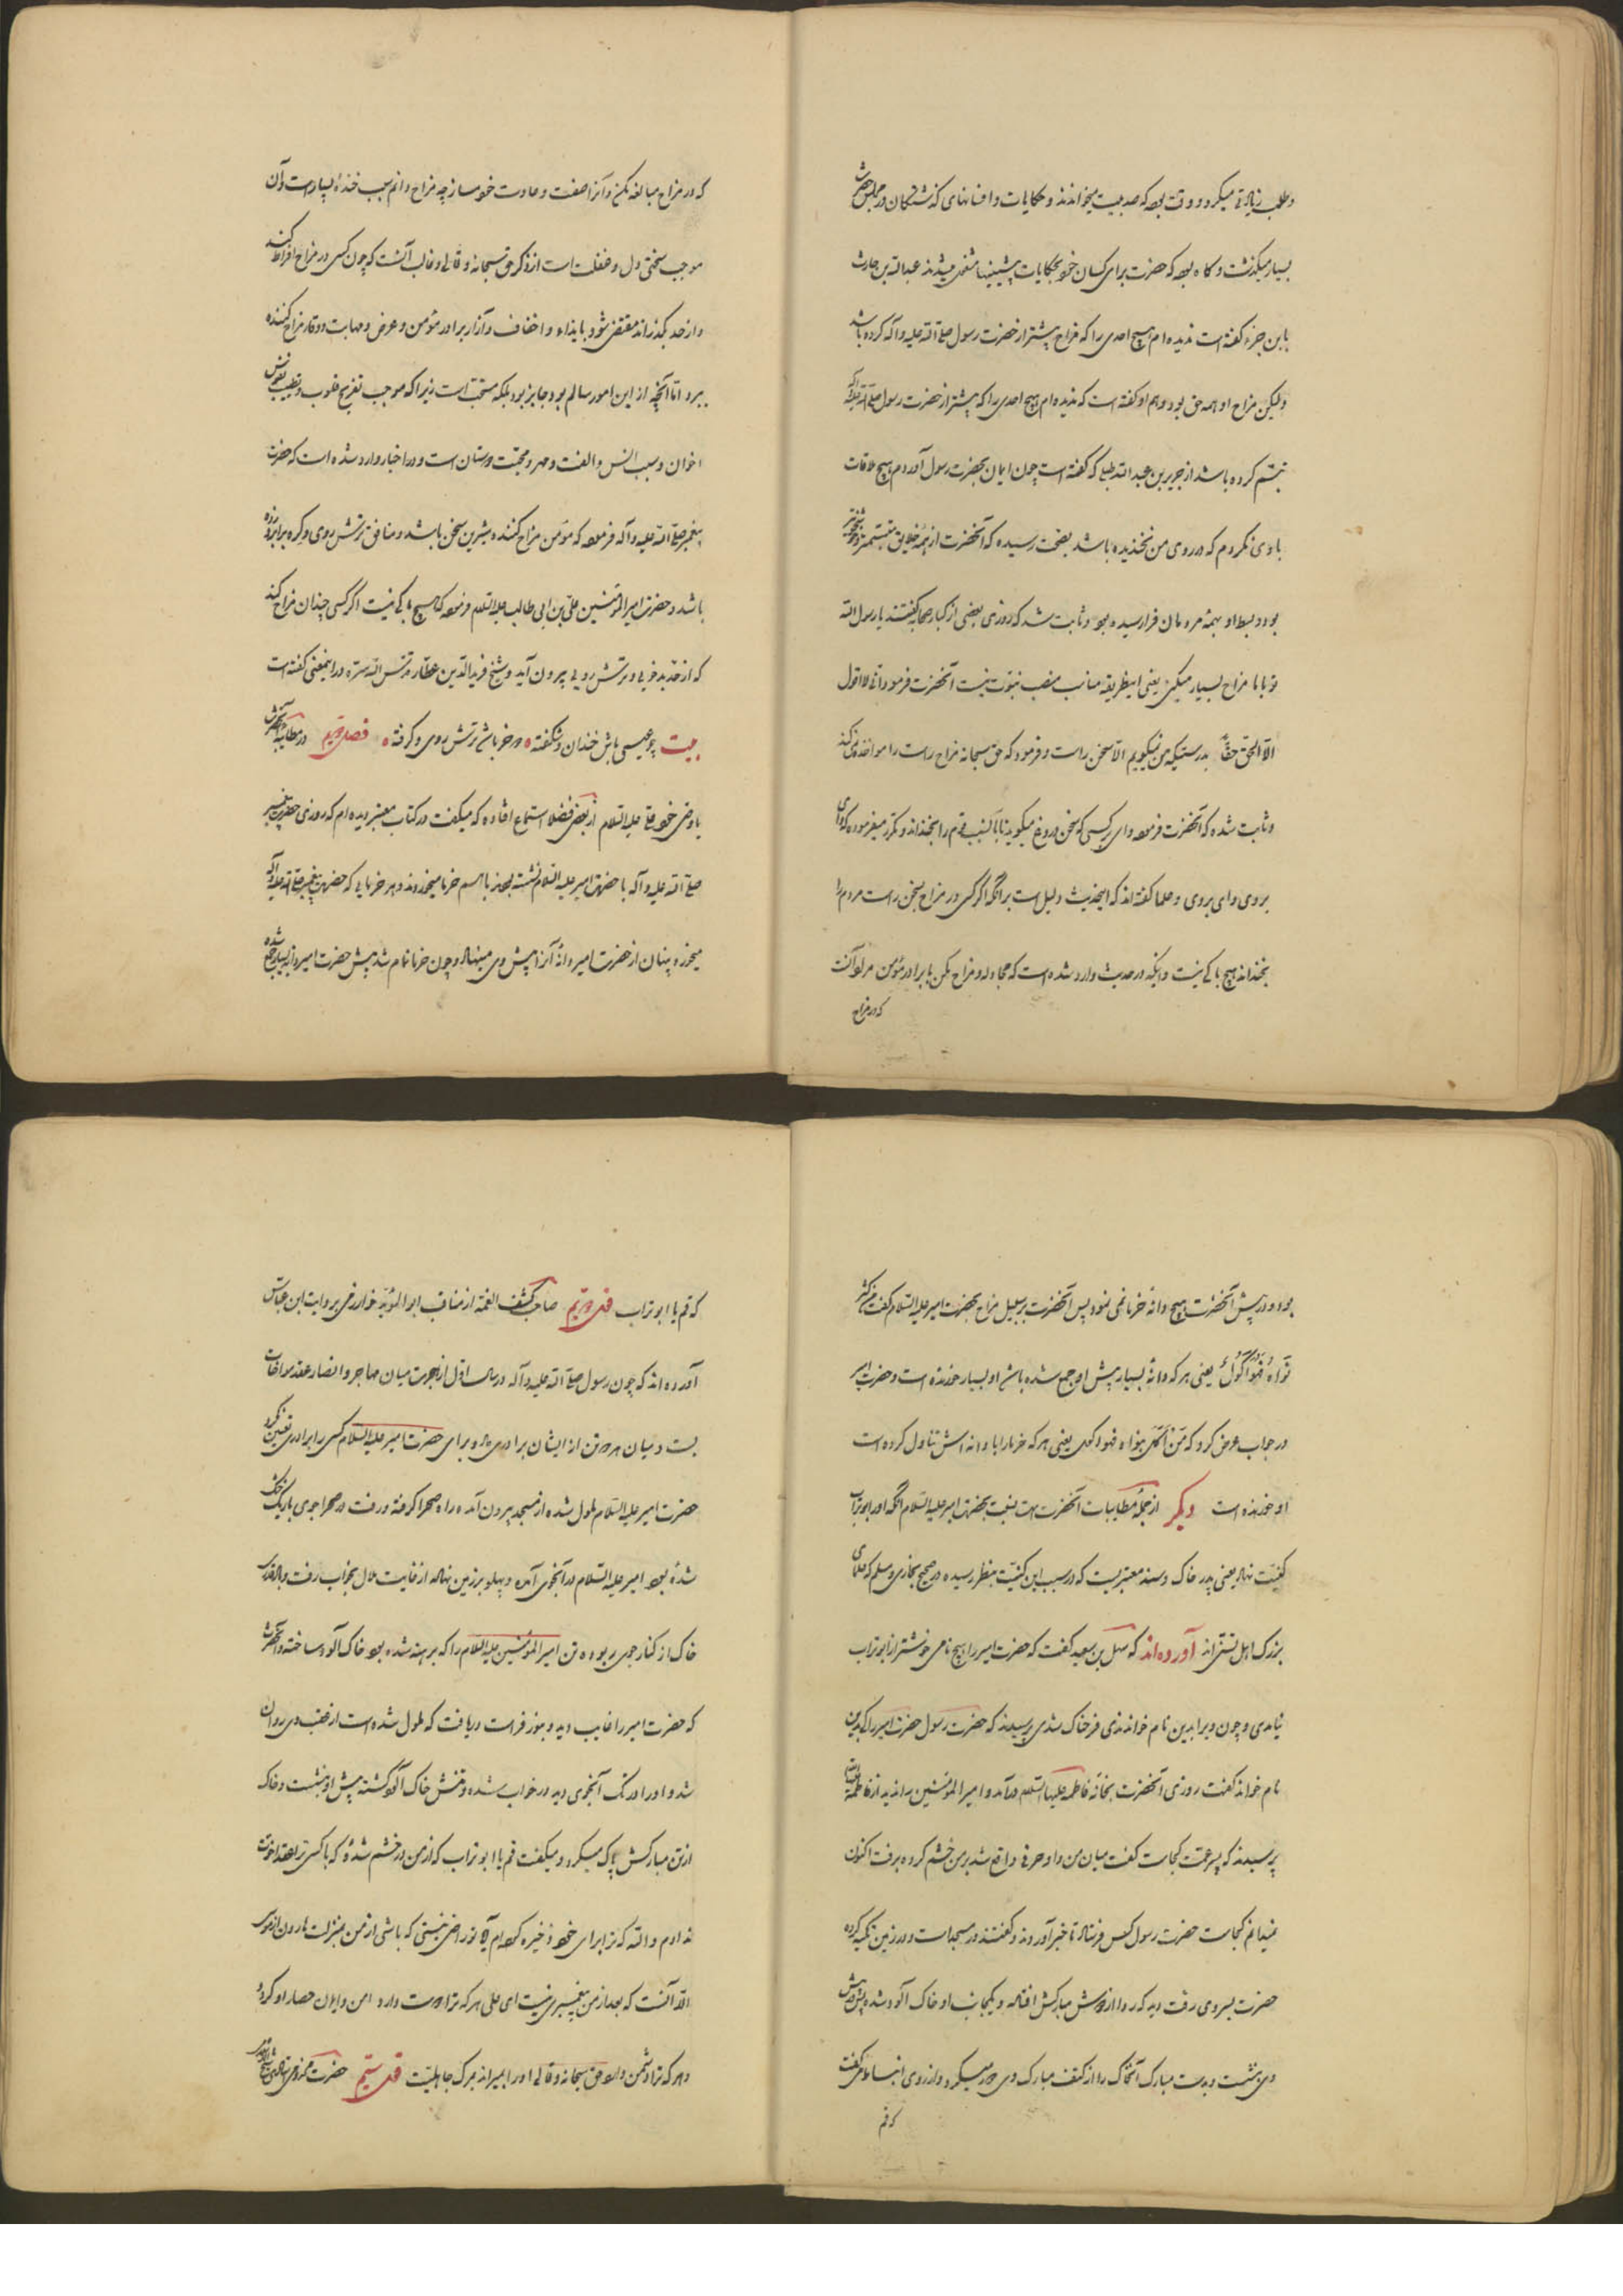 و طلب زیادتی میکرد و وقت بوده که صد بیت میخواندند و حکایات و افسانهای گذشتگان در مجلس حضرت
بسیار میگذشت و گاه بوده که حضرت برای کسان خود بحکایات پیشینها متغنی میشدند عبدالله بن حارث
بابن جزء گفته است ندیده‌ام هیچ احدی را که مزاح بیشتر از حضرت رسول صلی الله علیه و آله کرده باشد
ولیکن مزاح او همه حق بود و هم او گفته است که ندیده‌ام هیچ احدی را که بیشتر از حضرت رسول صلی الله علیه و آله
تبسم کرده باشد از جریر بن عبدالله بجلی که گفته است چون ایمان بحضرت رسول آوردم هیچ ملاقات
با وی نکردم که در روی من نخندیده باشد بصحت رسیده که آنحضرت از همه خلایق متبسمتر و خوشخوتر
بود و بسط او بهمه مردمان فرا رسیده بود و ثابت شد که روزی بعضی از کبار صحابه گفتند یا رسول الله
تو با ما مزاح بسیار میکنی یعنی اینطریقه مناسب منصب نبوت نیست آنحضرت فرمود انی لا اقول
الا الحق حقا بدرستیکه من نمیگویم الا سخن راست و فرمود که حق سبحانه مزاح راست را مواخذه نمیکند
و ثابت شده که آنحضرت فرموده وای بر کسی که سخن دروغ میگوید تا بآن سبب قوم را بخنداند و مکرر میفرموده که وای
بروی وای بروی و علما گفته‌اند که اینحدیث دلیل است بر آنکه اگر کسی در مزاح بسخن راست مردم را
بخنداند هیچ باکی نیست و اینکه در حدیث وارد شده است که مجادله و مزاح مکن با برادر مؤمن مراد آنست
که در مزاح
که در مزاح مبالغه مکن و آنرا صفت و عادت خود مساز چه مزاح دائم سبب خنده بسیار است و آن
موجب سختی دل و غفلت است از ذکر حق سبحانه و تعالی و غالب آنست که چون کسی در مزاح افراط کند
و از حد بگذراند مفضی شود بایذاء و اخفاف و آزار برادر مؤمن و عرض و مهابت و وقار مزاح کننده
ببرد اما آنچه از این امور سالم بود جایز بود بلکه مستحب است زیرا که موجب تفریح قلوب و تطییب نفوس
اخوان و سبب انس و الفت و مهر و محبت دوستان است و در اخبار وارد شده است که حضرت
پیغمبر صلی الله علیه و آله فرموده که مؤمن مزاح کننده و شیرین سخن باشد و منافق ترش روی و گره بر ابرو زده
باشد و حضرت امیرالمؤمنین علی بن ابی طالب علیه السلام فرموده که هیچ باکی نیست اگر کسی چندان مزاح کند
که از حد بدخویی و ترش رویی بیرون آید و شیخ فریدالدین عطار قدس الله سره در اینمعنی گفته است
بیت چو عیسی باش خندان و شکفته ه چو خر باشد ترش روی و گرفته ه فصل دویم در مطایبه آنحضرت
با وصی خود علی علیه السلام از بعض فضلا استماع افتاده که میگفت در کتاب معتبر دیده‌ام که روزی حضرت پیغمبر
صلی الله علیه و آله با حضرت امیر علیه السلام نشسته بودند با هم خرما میخوردند و هر خرمایی که حضرت پیغمبر صلی الله علیه و آله
میخورد پنهان از حضرت امیر دانهٔ آنرا پیش وی مینهاد و چون خرما تمام شد پیش حضرت امیر دانه بسیار جمع شده
بود و در پیش آنحضرت هیچ دانه خرما نمی نمود پس آنحضرت بر سبیل مزاح بحضرت امیر علیه السلام گفت من کثر
نواه فهو اکول یعنی هر که دانهٔ بسیار پیش او جمع شده باشد او بسیار خورنده است و حضرت امیر
در جواب عرض کرد که من اکل بنواه فهو اکول یعنی هر که خرما را با دانه‌اش تناول کرده است
او خورنده است دیگر از جمله مطایبات آنحضرت است نسبت بحضرت امیر علیه السلام آنکه او را بوتراب
کنیت نهاد یعنی پدر خاک و سند معتبریست که در سبب این کنیت بنظر رسیده در صحیح بخاری و مسلم که علمای
بزرگ اهل تسنن‌اند آورده‌اند که سهل بن سعید گفت که حضرت امیر را هیچ نامی خوشتر از ابوتراب
نیامدی و چون ویرا بدین نام خواندندی فرحناک شدی پرسیدند که حضرت رسول حضرت امیر را کی بدین
نام خواند گفت روزی آنحضرت بخانه فاطمه علیها السلام درآمد و امیرالمؤمنین را ندید از فاطمه علیها السلام
پرسیدند که پسر عمت کجاست گفت میان من و او حرفی واقع شد بر من خشم کرده برفت اکنون
نمیدانم کجاست حضرت رسول کس فرستاد تا خبر آوردند و گفتند در مسجد است و در زمین تکیه کرده
حضرت بسر وی رفت دید که ردا از دوش مبارکش افتاده و یکجانب او خاک آلود شده پیش
وی نشست و بدست مبارک آنخاک را از کتف مبارک وی دور میکرد و از روی انبساط می گفت
که قم
که قم یا ابوتراب قول دویم صاحب کشف الغمه از مناقب ابوالمؤید خوارزمی بروایت ابن عباس
آورده‌اند که چون رسول صلی الله علیه و آله در سال اول از هجرت میان مهاجر و انصار عقد مواخات
بست و میان هر دو تن از ایشان برادری داد و برای حضرت امیر علیه السلام کسی را برادری تعیین نکرد
حضرت امیر علیه السلام ملول شده از مسجد بیرون آمده راه صحرا گرفته و رفت در صحرا جوی باریک خشک
شده بود امیر علیه السلام در آنجوی آمده و پهلو بر زمین نهاده از غایت ملال بخواب رفت و باد قدری
خاک از کنار جوی ربوده تن امیرالمؤمنین علیه السلام را که برهنه شده بود خاک آلود ساخته و آنحضرت
که حضرت امیر را غایب دید و بنور فراست دریافت که ملول شده است از عقب وی روان
شد و او را در تک آنجوی دید در خواب شده و تنش خاک آلود گشته پیش او بنشست و خاک
از تن مبارکش پاک میکرد و میگفت قم یا ابوتراب که از من در خشم شدهٔ که با کسی ترا عقد اخوت
ندادم والله که ترا برای خود ذخیره کرده‌ام آیا تو راضی نیستی که باشی از من بمنزلت هارون از موسی
الا آنست که بعد از من پیغمبری نیست ای علی هر که ترا دوست دارد امن و ایمان حصار او گردد
و هر که ترا دشمن دارد حق سبحانه و تعالی او را بمیراند بمرگ جاهلیت قول سیم حضرت